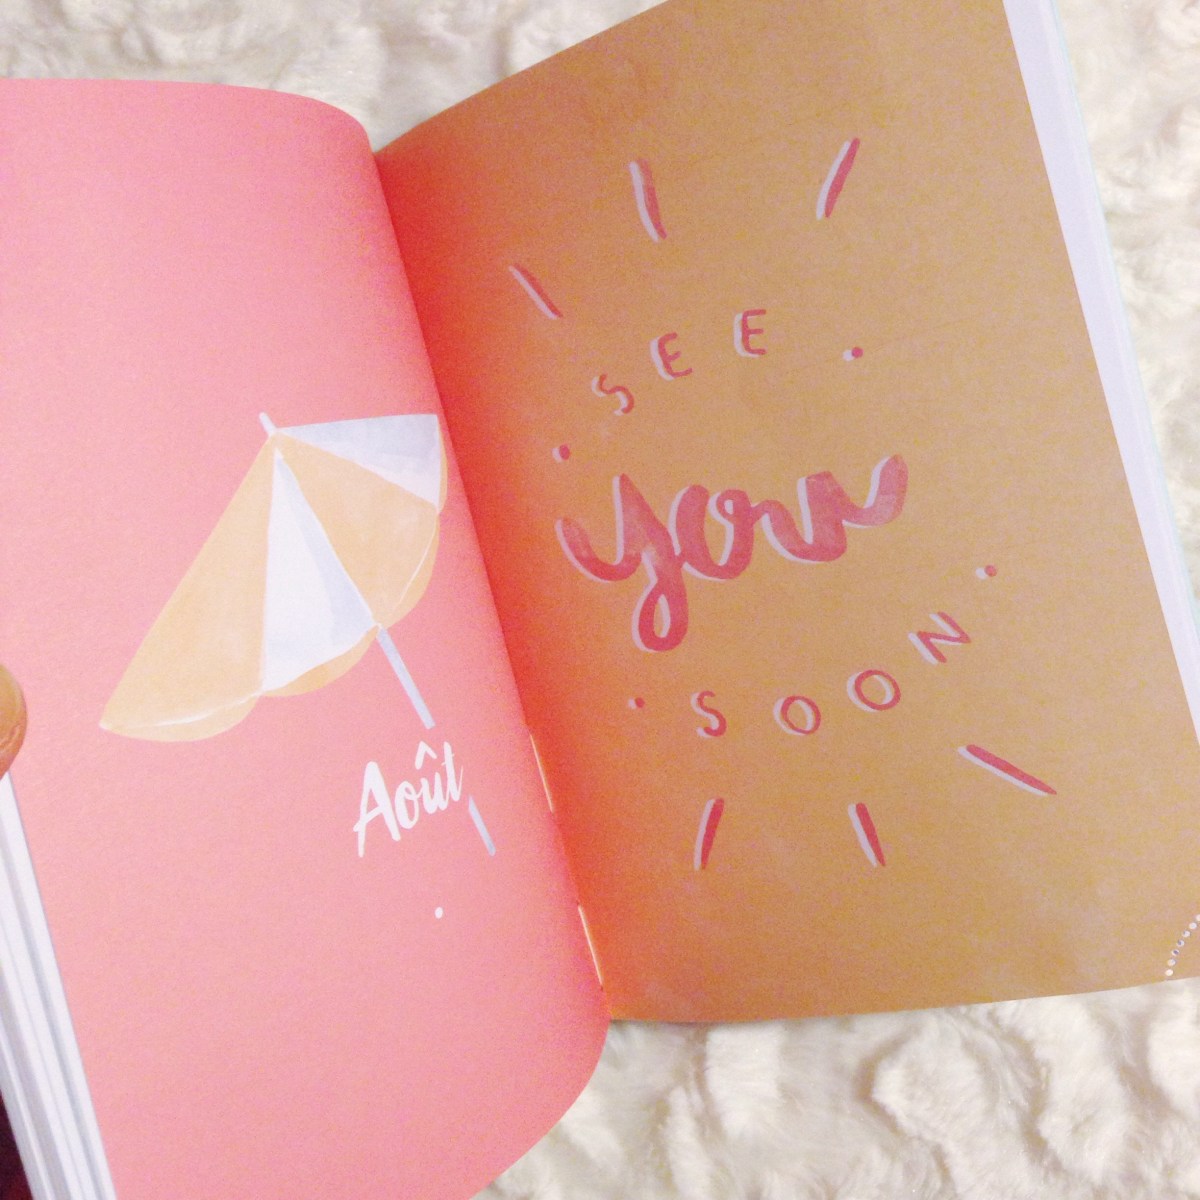 Août
SEE
you
SOON